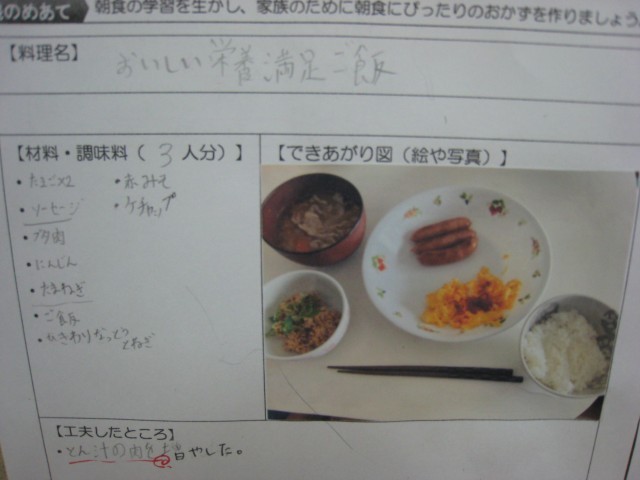 のめあて 朝食の学習を生かし、家族のために朝食にぴったりのおかずを作りましょう
【料理名】 おいしい栄養満足ご飯
【材料・調味料（3人分）】
・たまご×2 ・赤みそ
・ソーセージ ・ケチャップ
・ブタ肉
・にんじん
・たまねぎ
・ご飯
・ひきわりなっとう
とねぎ
【できあがり図（絵や写真）】
【工夫したところ】
・とん汁の肉を増やした。